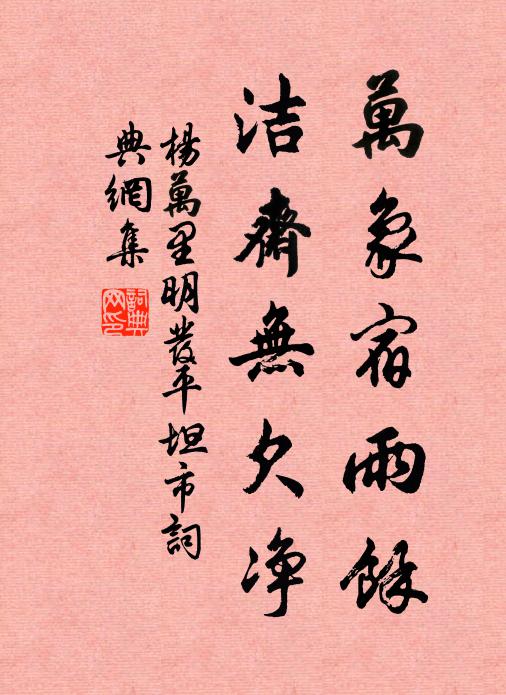 萬象宿雨餘
洁齊無久净
楊萬里明發平坦市詞
典網集
詞典
网印